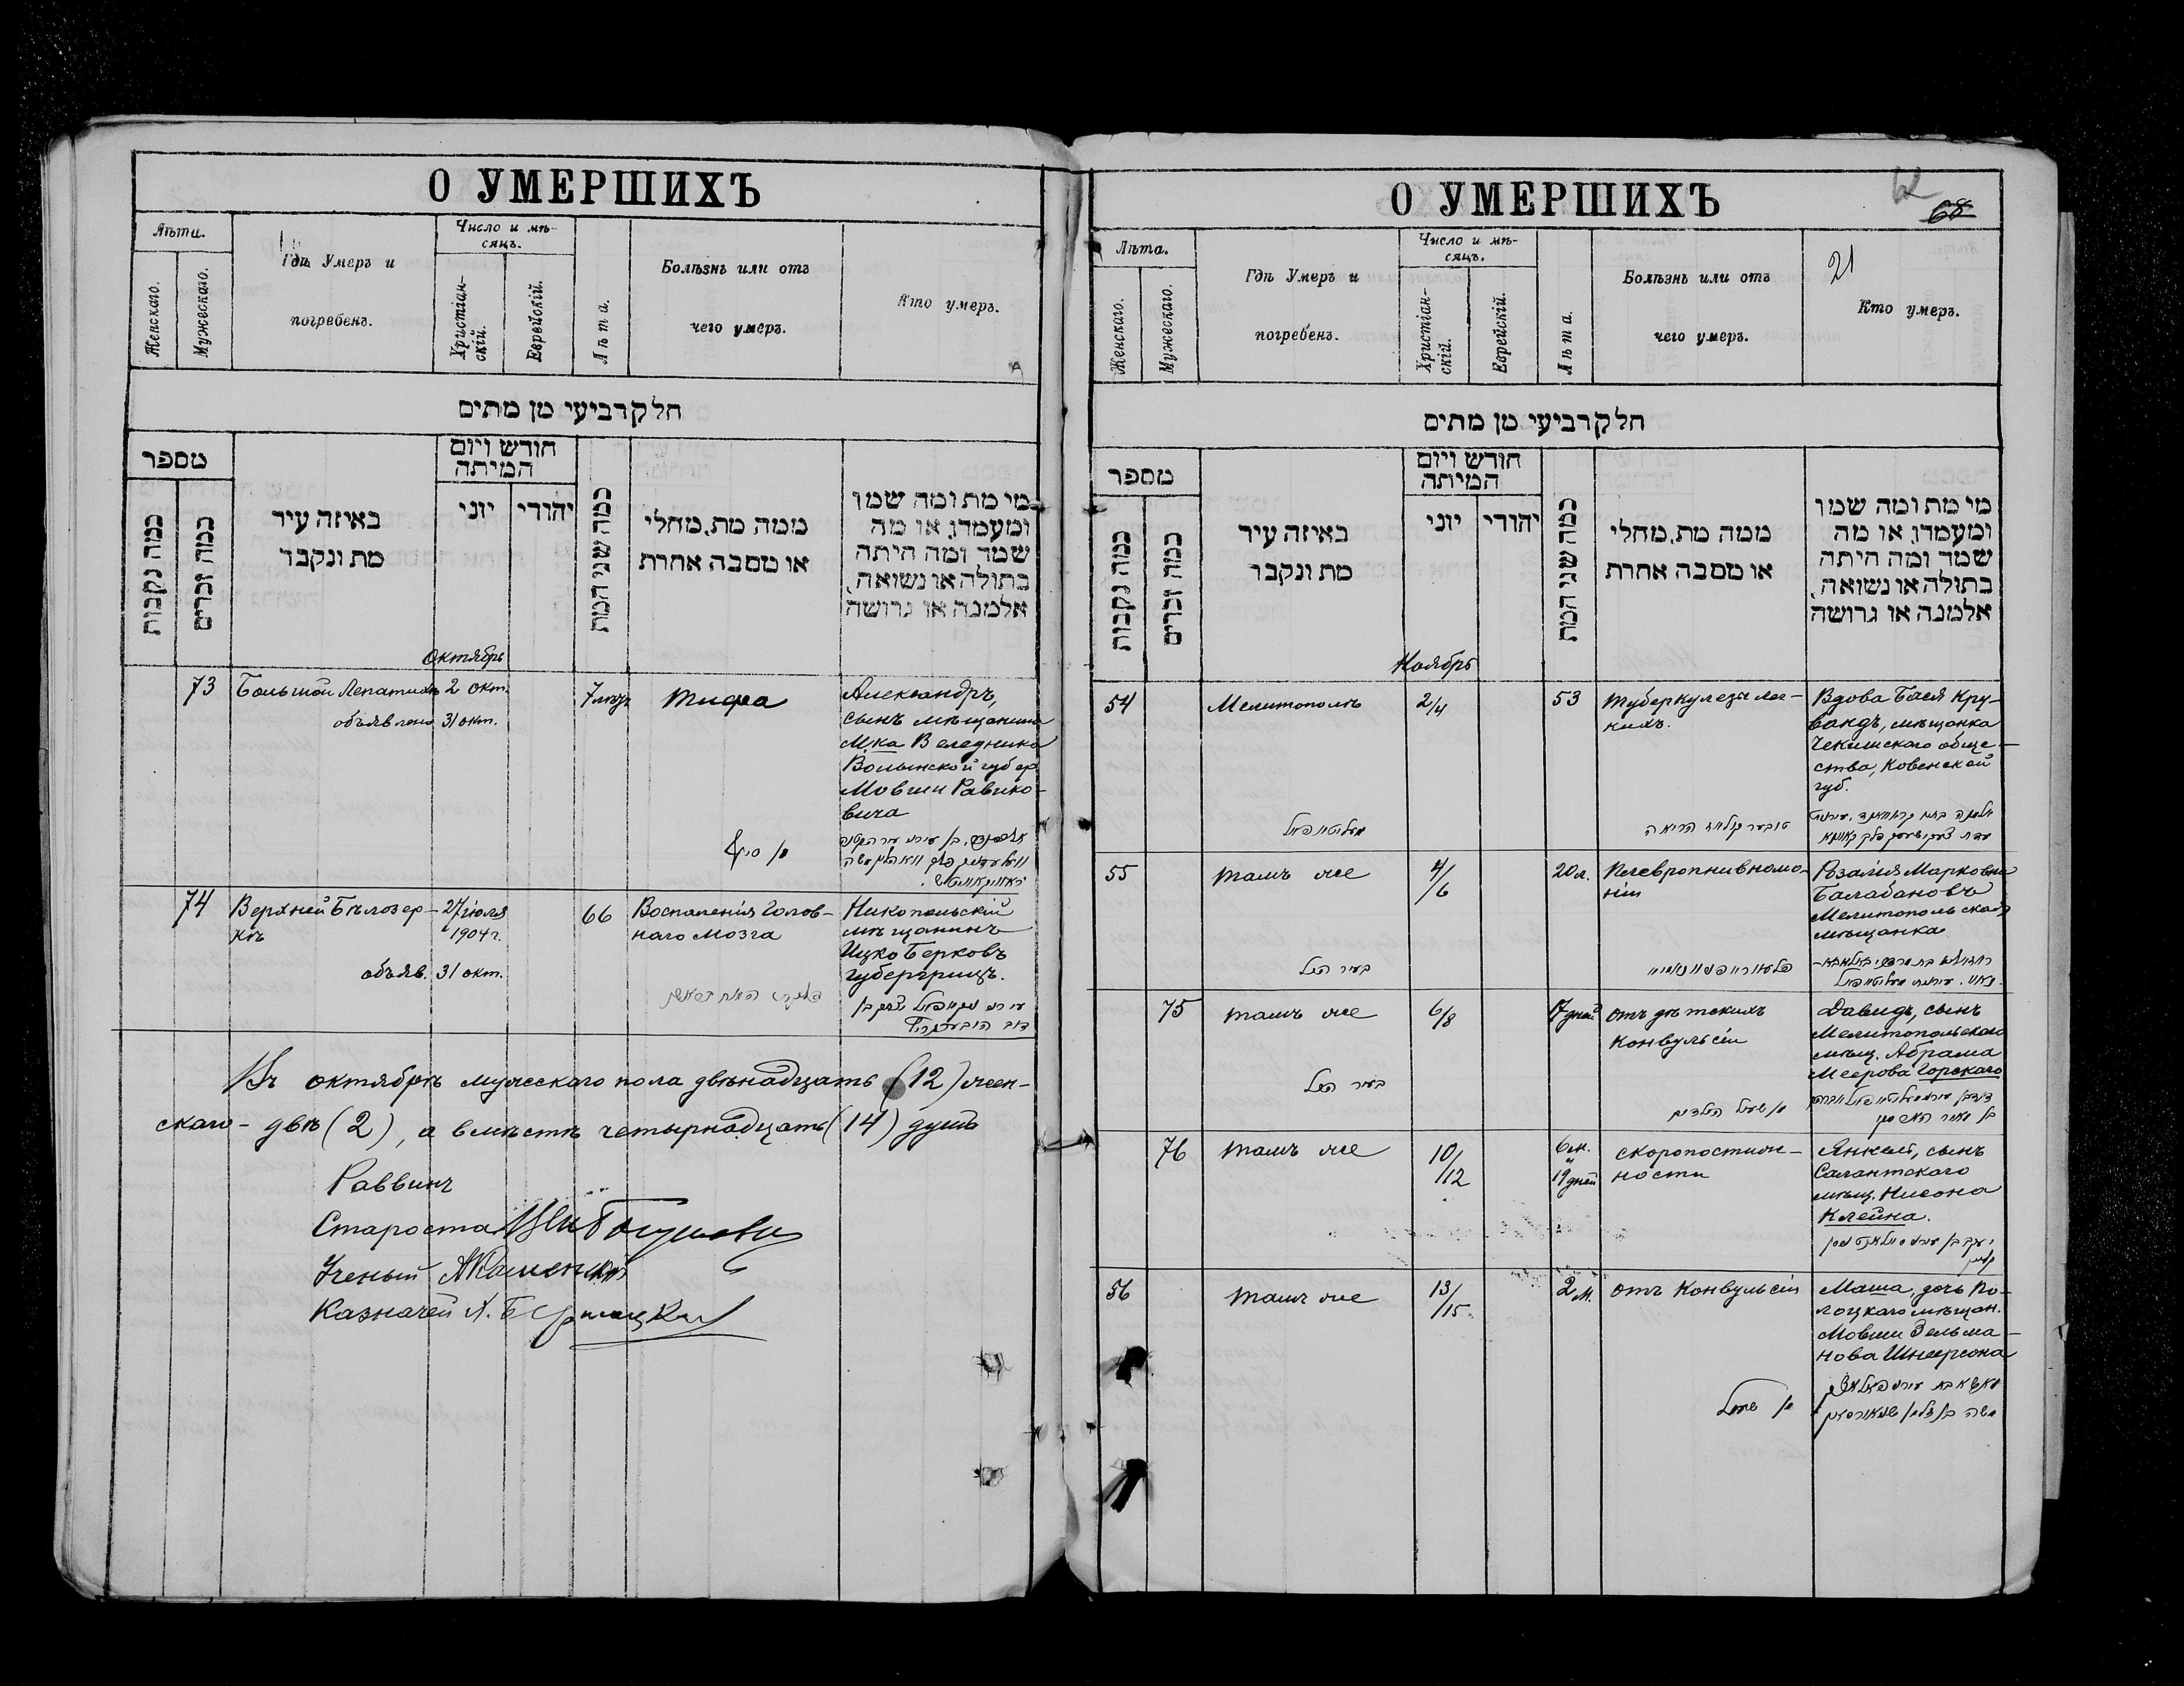 О УМЕРШИХЪ
Лѣта.
Женскаго.
Мужескаго.
Гдѣ Умеръ и
погребенъ.
Число и мѣ-
сяцъ.
Христіан-
скій.
Еврейскій.
Лѣта.
Болѣзнь или отъ
чего умеръ.
Кто умеръ.
חלק רביעי מן מתים
מספר
כמה נקבות
כמה זכרים
באיזה עיר
מת ונקבר
חודש ויום
המיתה
יוני
יהודי
כמה שני המת
ממה מת, מחלי
או מסבה אחרת
מי מת ומה שמו
ומעמדו, או מה
שמד ומה היתה
בתולה או נשואה,
אלמנה או גרושה
Октябрь
73
Большой Лепатихѣ
объявлено
2 окт.
31 окт.
7 мѣс.
Тифа
Александръ,
сынъ мѣщанина
М.ка Веледника
Волынской губер.
Мовши Равико-
вича
74
Верхней Бѣлозер-
кѣ
объяв.
27 іюля
1904 г.
31 окт.
66
Воспаленія Голов-
наго Мозга
Никопольскій
мѣщанинъ
Ицко Берковъ
Губергрицъ.
Въ октябрѣ мужескаго пола двѣнадцать (12) жен-
скаго - двѣ (2), а вмѣстѣ четырнадцать (14) душъ
Раввинъ
Староста
Ученый
Казначей
О УМЕРШИХЪ
68
21
Лѣта.
Женскаго.
Мужескаго.
Гдѣ Умеръ и
погребенъ.
Число и мѣ-
сяцъ.
Христіан-
скій.
Еврейскій.
Лѣта.
Болѣзнь или отъ
чего умеръ.
Кто умеръ.
חלק רביעי מן מתים
מספר
כמה נקבות
כמה זכרים
באיזה עיר
מת ונקבר
חודש ויום
המיתה
יוני
יהודי
כמה שני המת
ממה מת, מחלי
או מסבה אחרת
מי מת ומה שמו
ומעמדו, או מה
שמד ומה היתה
בתולה או נשואה,
אלמנה או גרושה
Ноябрь
54
Мелитополѣ
2/4
53
Туберкулезы лег-
кихъ.
Вдова Бася Кру-
вандъ, мѣщанка
Чекишскаго обще-
ства, Ковенской
губ.
55
Тамъ же
4/6
20 л.
Плевропнивмо-
ніи
Розалія Марковна
Балабановъ
Мелитопольская
мѣщанка
בעיר הנ"ל
75
Тамъ же
6/8
17 дней
отъ дѣтскихъ
конвульсіи
Давидъ, сынъ
Мелитопольскаго
мѣщ. Абрама
Меерова Горскаго
בעיר הנ"ל
76
Тамъ же
10/12
6 м.
и
19 дней
скоропостиж-
ности
Янкель, сынъ
Салантскаго
мѣщ. Нисона
Клейна.
56
Тамъ же
13/15
2 м.
отъ конвульсіи
Маша, дочь По-
лоцкаго мѣщан.
Мовши Зельма-
нова Шнеерсона